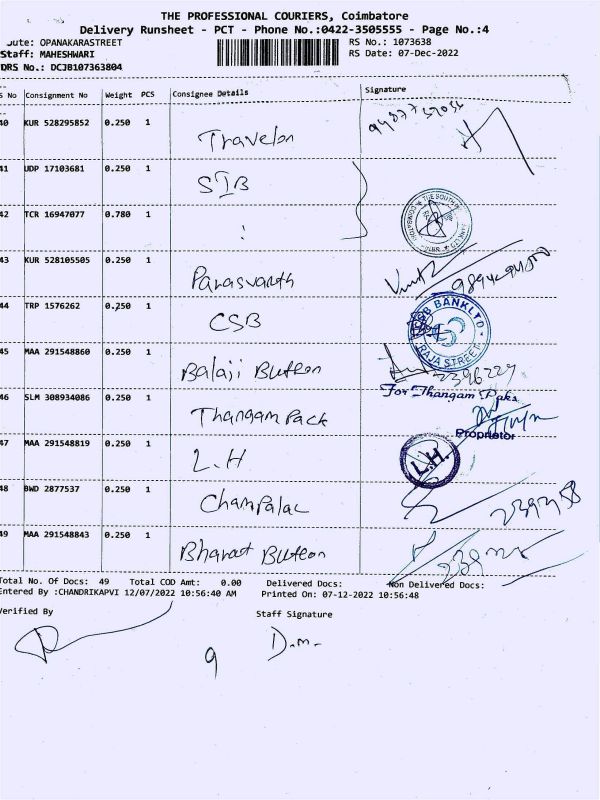 THE PROFESSIONAL COURIERS, Coimbatore
Delivery Runsheet - PCT - Phone No.:0422-3505555 - Page No.:4
oute: OPANAKARASTREET RS No.: 1073638
Staff: MAHESHWARI RS Date: 07-Dec-2022
DRS No.: DCJB107363804
S No Consignment No Weight PCS Consignee Details Signature
40 KUR 528295852 0.250 1 Travelon
41 UDP 17103681 0.250 1 SIB
42 TCR 16947077 0.780 1
43 KUR 528105505 0.250 1 Parasvanth
44 TRP 1576262 0.250 1 CSB BANK LTD RAJA STREET
45 MAA 291548860 0.250 1 Balaji Button 2396229
46 SLM 308934086 0.250 1 Thangam Pack For Thangam Paks
Proprietor
47 MAA 291548819 0.250 1 L.H L.H.
48 BWD 2877537 0.250 1 Champalal
49 MAA 291548843 0.250 1 Bharat Button
Total No. Of Docs: 49 Total COD Amt: 0.00 Delivered Docs: Non Delivered Docs:
Entered By :CHANDRIKAPVI 12/07/2022 10:56:40 AM Printed On: 07-12-2022 10:56:48
Verified By Staff Signature
9 D.m.